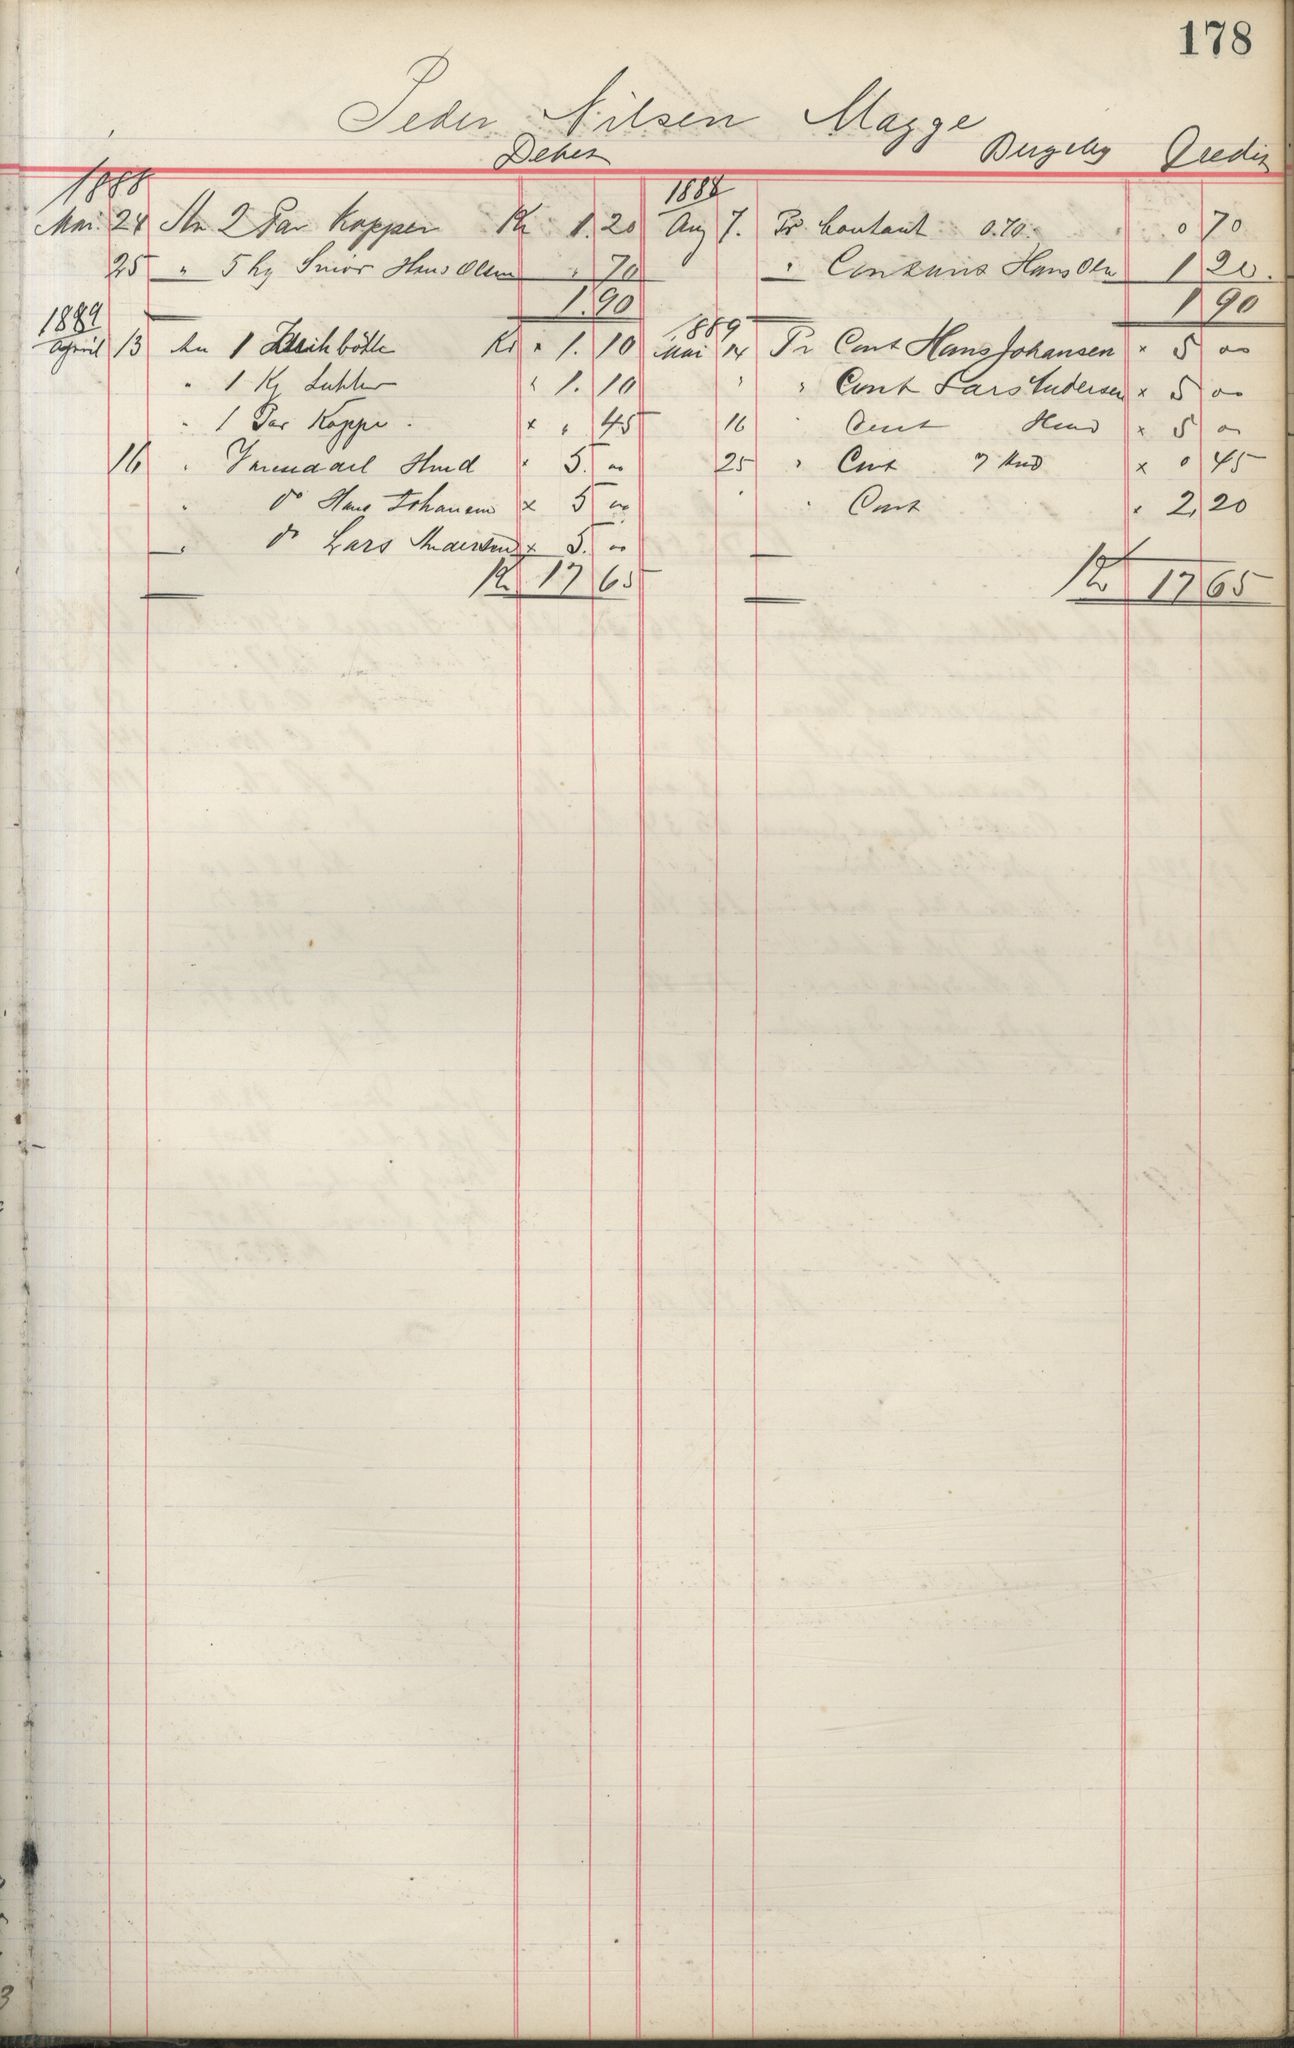 178
Peder Nilsen Magge
Debet Bergeby Credit
1888
Mai 24 An 2 Par Kopper Kr 1.20
25 " 5 kg Smör Hans Olsen " 70
1.90
1889
April 13 An 1 bötte Kr " 1.10
" 1 Kg " 1.10
" 1 Par Koppe . × " 45
16 " × 5. 00
" do Hans Johansen × 5 00
" do Lars Andersen × 5. 00
Kr 17 65
1888
Aug 7. Pr Contant 0.70. 0 70
" Contant Hans Olsn 1 20.
1 90
1889
Mai 14 Pr Cont Hans Johansen × 5 00
" " Cont Lars Andersen × 5 00
16 " Cont × 5 00
25 " Cont × 0 45
" " Cont " 2,20
Kr 17 65